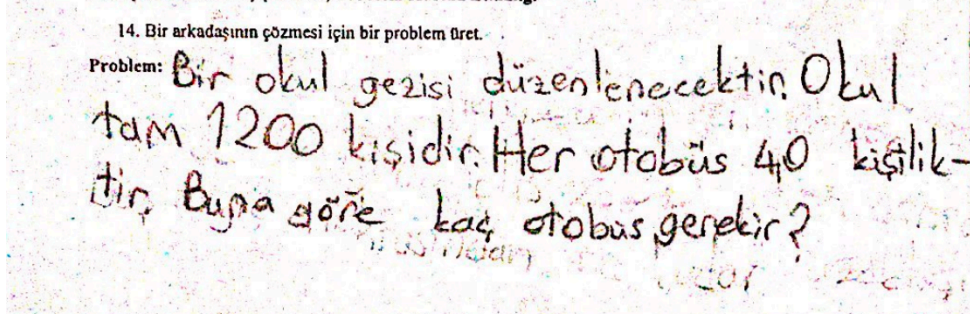 14. Bir arkadaşının çözmesi için bir problem üret.
Problem: Bir okul gezisi düzenlenecektir. Okul
tam 1200 kişidir. Her otobüs 40 kişilik-
tir. Buna göre kaç otobüs gerekir?